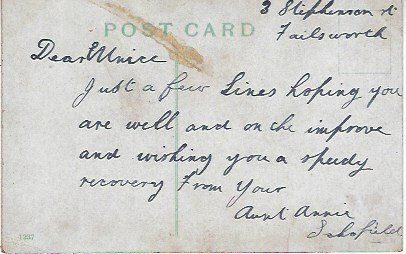 POST CARD
3 Stephenson st
Failsworth
Dear Eunice
Just a few Lines hoping you
are well and on the improove
and wishing you a speedy
recovery From Your
Aunt Annie
Schofield
1237